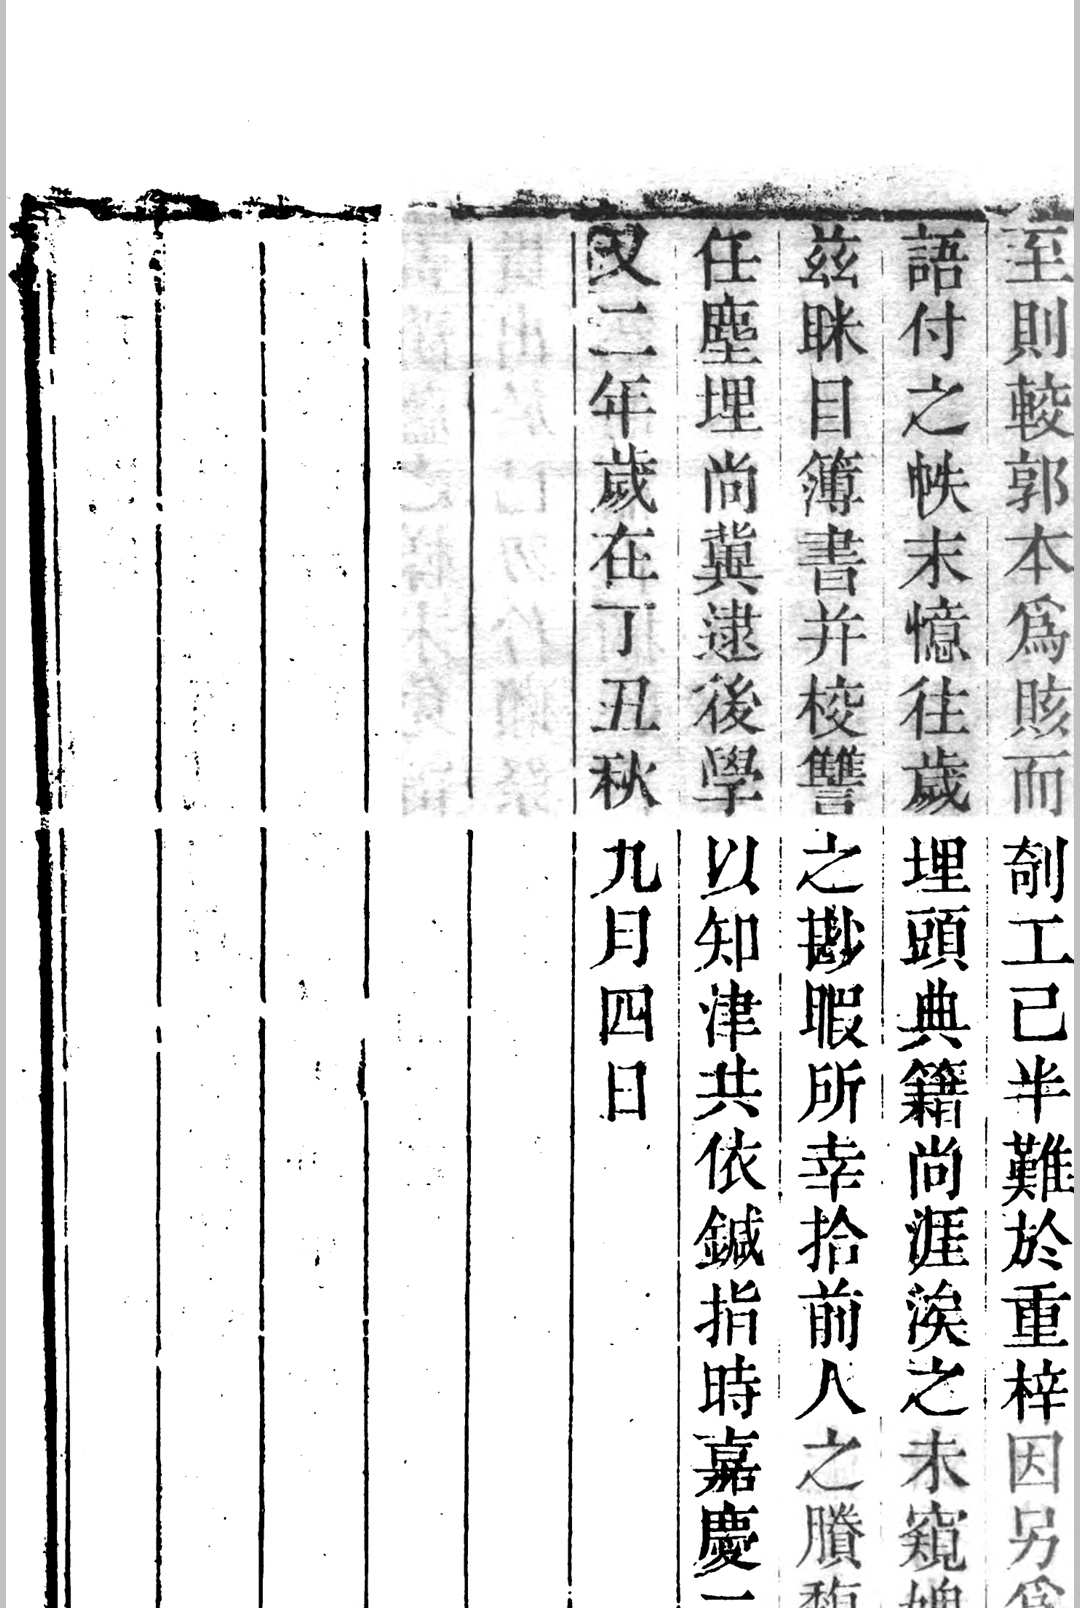 至則較郭本為賅而剞工已半難於重梓因另為
語付之帙末憶往歲埋頭典籍尚涯涘之未窺媿
茲眯目簿書并校讐之尠暇所幸拾前人之賸馥
任塵埋尚冀逮後學以知津共依鍼指時嘉慶二
又二年歲在丁丑秋九月四日